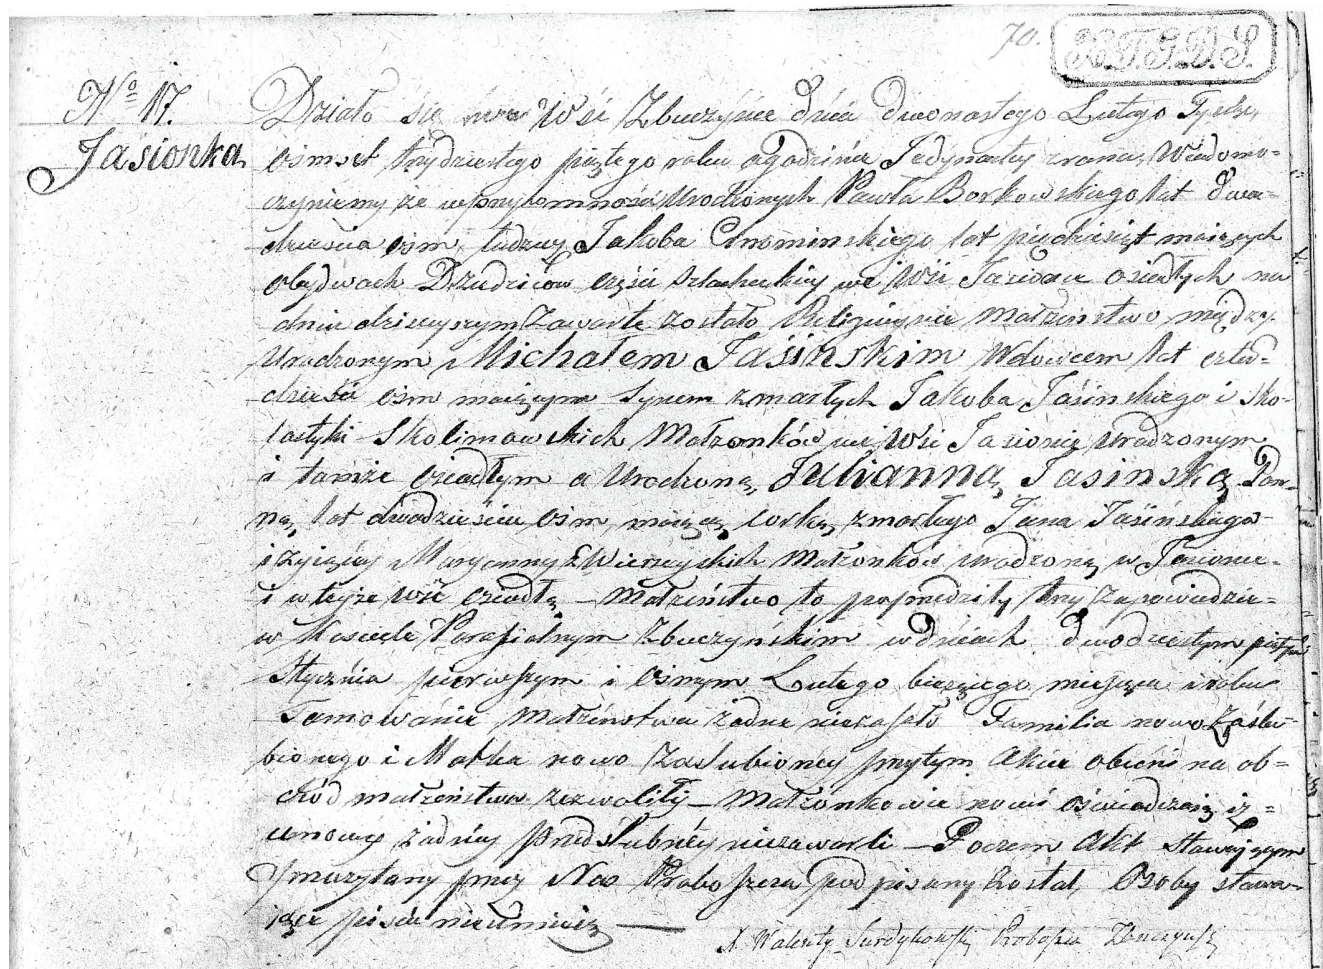 70.
X.T.G.D.S.
No 17.
Jasionka
Działo się we Wsi Zbuczynie dnia dwonastego Lutego Tysiąc
ośmset trzydziestego piątego roku o godzinie Jedynastej zrana, Wiadomo
czyniemy że w przytomności Urodzonych Pawła Borkowskiego lat dwa-
dzieścia ośm, tudzież Jakoba Chromińskiego lat piędziesiąt maiących
obydwoch Dziedziców części szlacheckiey we Wsi osiadłych na
dniu dzisieyszym Zawarte zostało Religijnie Małżeństwo między
Urodzonym Michałem Jasińskim Wdowcem lat czter-
dzieści ośm maiącym Synem zmarłych Jakoba Jasińskiego i Sko-
lastyki Skolimowskich Małżonków we Wsi Jasionce urodzonym
i tamże osiadłym a Urodzoną Julianną Jasinską Pan-
ną, lat dwadzieścia ośm maiącą corką zmarłego Jana Jasińskiego
i żyiącey Maryanny Małżonków urodzoną w Jasionce
i w tejże Wsi osiadłą — Małżeństwo to poprzedziły trzy zapowiedzie
w Kosciele Parafialnym Zbuczyńskim w dniach dwodziestym piątym
Stycznia pierwszym i ósmym Lutego bieżącego miesiąca i roku
Tamowanie Małżeństwa żadne niezaszło Familia nowo Zaślu-
bionego i Matka nowo Zaslubioney przytym Akcie obecni na ob-
chód małżeństwa zezwolili — Małżonkowie nowi oświadczaią iż
umowy żadney przedślubney niezawarli — Poczem Akt stawającym
przeczytany przez Nas Proboszcza podpisany został, Osoby stawa-
iące pisać nieumieią —
X. Walenty Surdykowski Proboszcz Zbuczyński